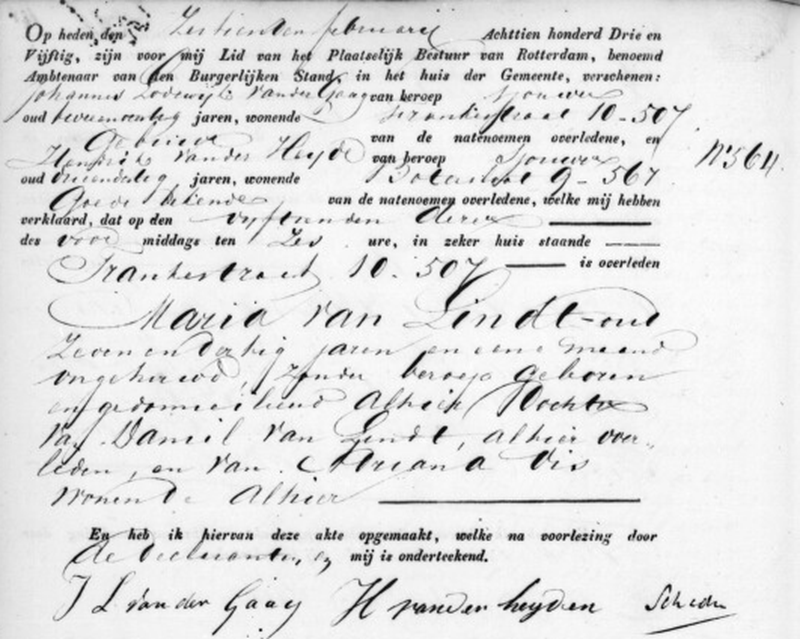 Op heden den Zestienden februarij Achttien honderd Drie en
Vijftig, zijn voor mij Lid van het Plaatselijk Bestuur van Rotterdam, benoemd
Ambtenaar van den Burgerlijken Stand, in het huis der Gemeente, verschenen:
Johannes Lodewijk van der Gaag van beroep sjouwer
oud jaren, wonende Frankestraat 10-507
van de natenoemen overledene, en
Hendrik van der Heyde van beroep sjouwer N 564.
oud jaren, wonende 9-567
Goede bekende van de natenoemen overledene, welke mij hebben
verklaard, dat op den vijftienden dezer
des voor middags ten Zes ure, in zeker huis staande
Frankestraat 10-507 is overleden
Maria van Lindt oud
Zeven en dertig jaren en eene maand
ongehuwd, zonder beroep geboren
en gedomicilieerd alhier, Dochter
van Daniel van Lindt, alhier over-
leden, en van Adriana Vis
wonende alhier
En heb ik hiervan deze akte opgemaakt, welke na voorlezing door
de declaranten en mij is onderteekend.
J L van der Gaag H van der heyden